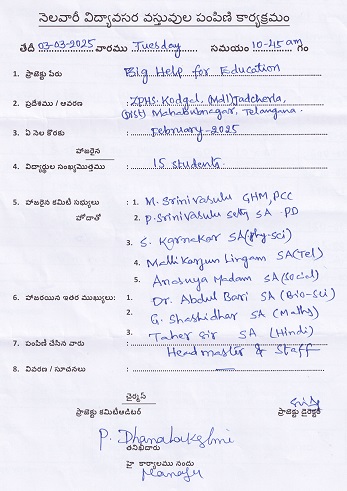 నెలవారీ విద్యావసర వస్తువుల పంపిణి కార్యక్రమం
తేదీ 03-03-2025 వారము Tuesday సమయం 10-45 am గం
1. ప్రాజెక్టు పేరు Big Help for Education
2. ప్రదేశము / ఆవరణ ZPHS. Kodgal, (Mdl) Jadcherla,
(Dist) Mahabubnagar, Telangana.
3. ఏ నెల కొరకు February-2025
హాజరైన
4. విద్యార్థుల సంఖ్యమొత్తము 15 students.
5. హాజరైన కమిటీ సభ్యులు : 1. M. Srinivasulu GHM, PCC
హోదాతో 2. P. Srinivasulu Setty SA - PD
3. S. Karnakar SA (phy-sci)
4. Mallikarjun Lingam SA (Tel)
5. Anasuya Madam SA (Social)
6. హాజరయిన ఇతర ముఖ్యులు: 1. Dr. Abdul Bari SA (Bio-sci)
2. G. Shashidhar SA (Maths)
3. Taher Sir SA (Hindi)
7. పంపిణి చేసిన వారు Headmaster & Staff
8. వివరణ / సూచనలు
ఛైర్మన్
ప్రాజెక్టు కమిటీఆడిటర్ ప్రాజెక్టు డైరెక్టర్
P. Dhanalakshmi
తనిఖీదారు
హై కార్యాలము నందు